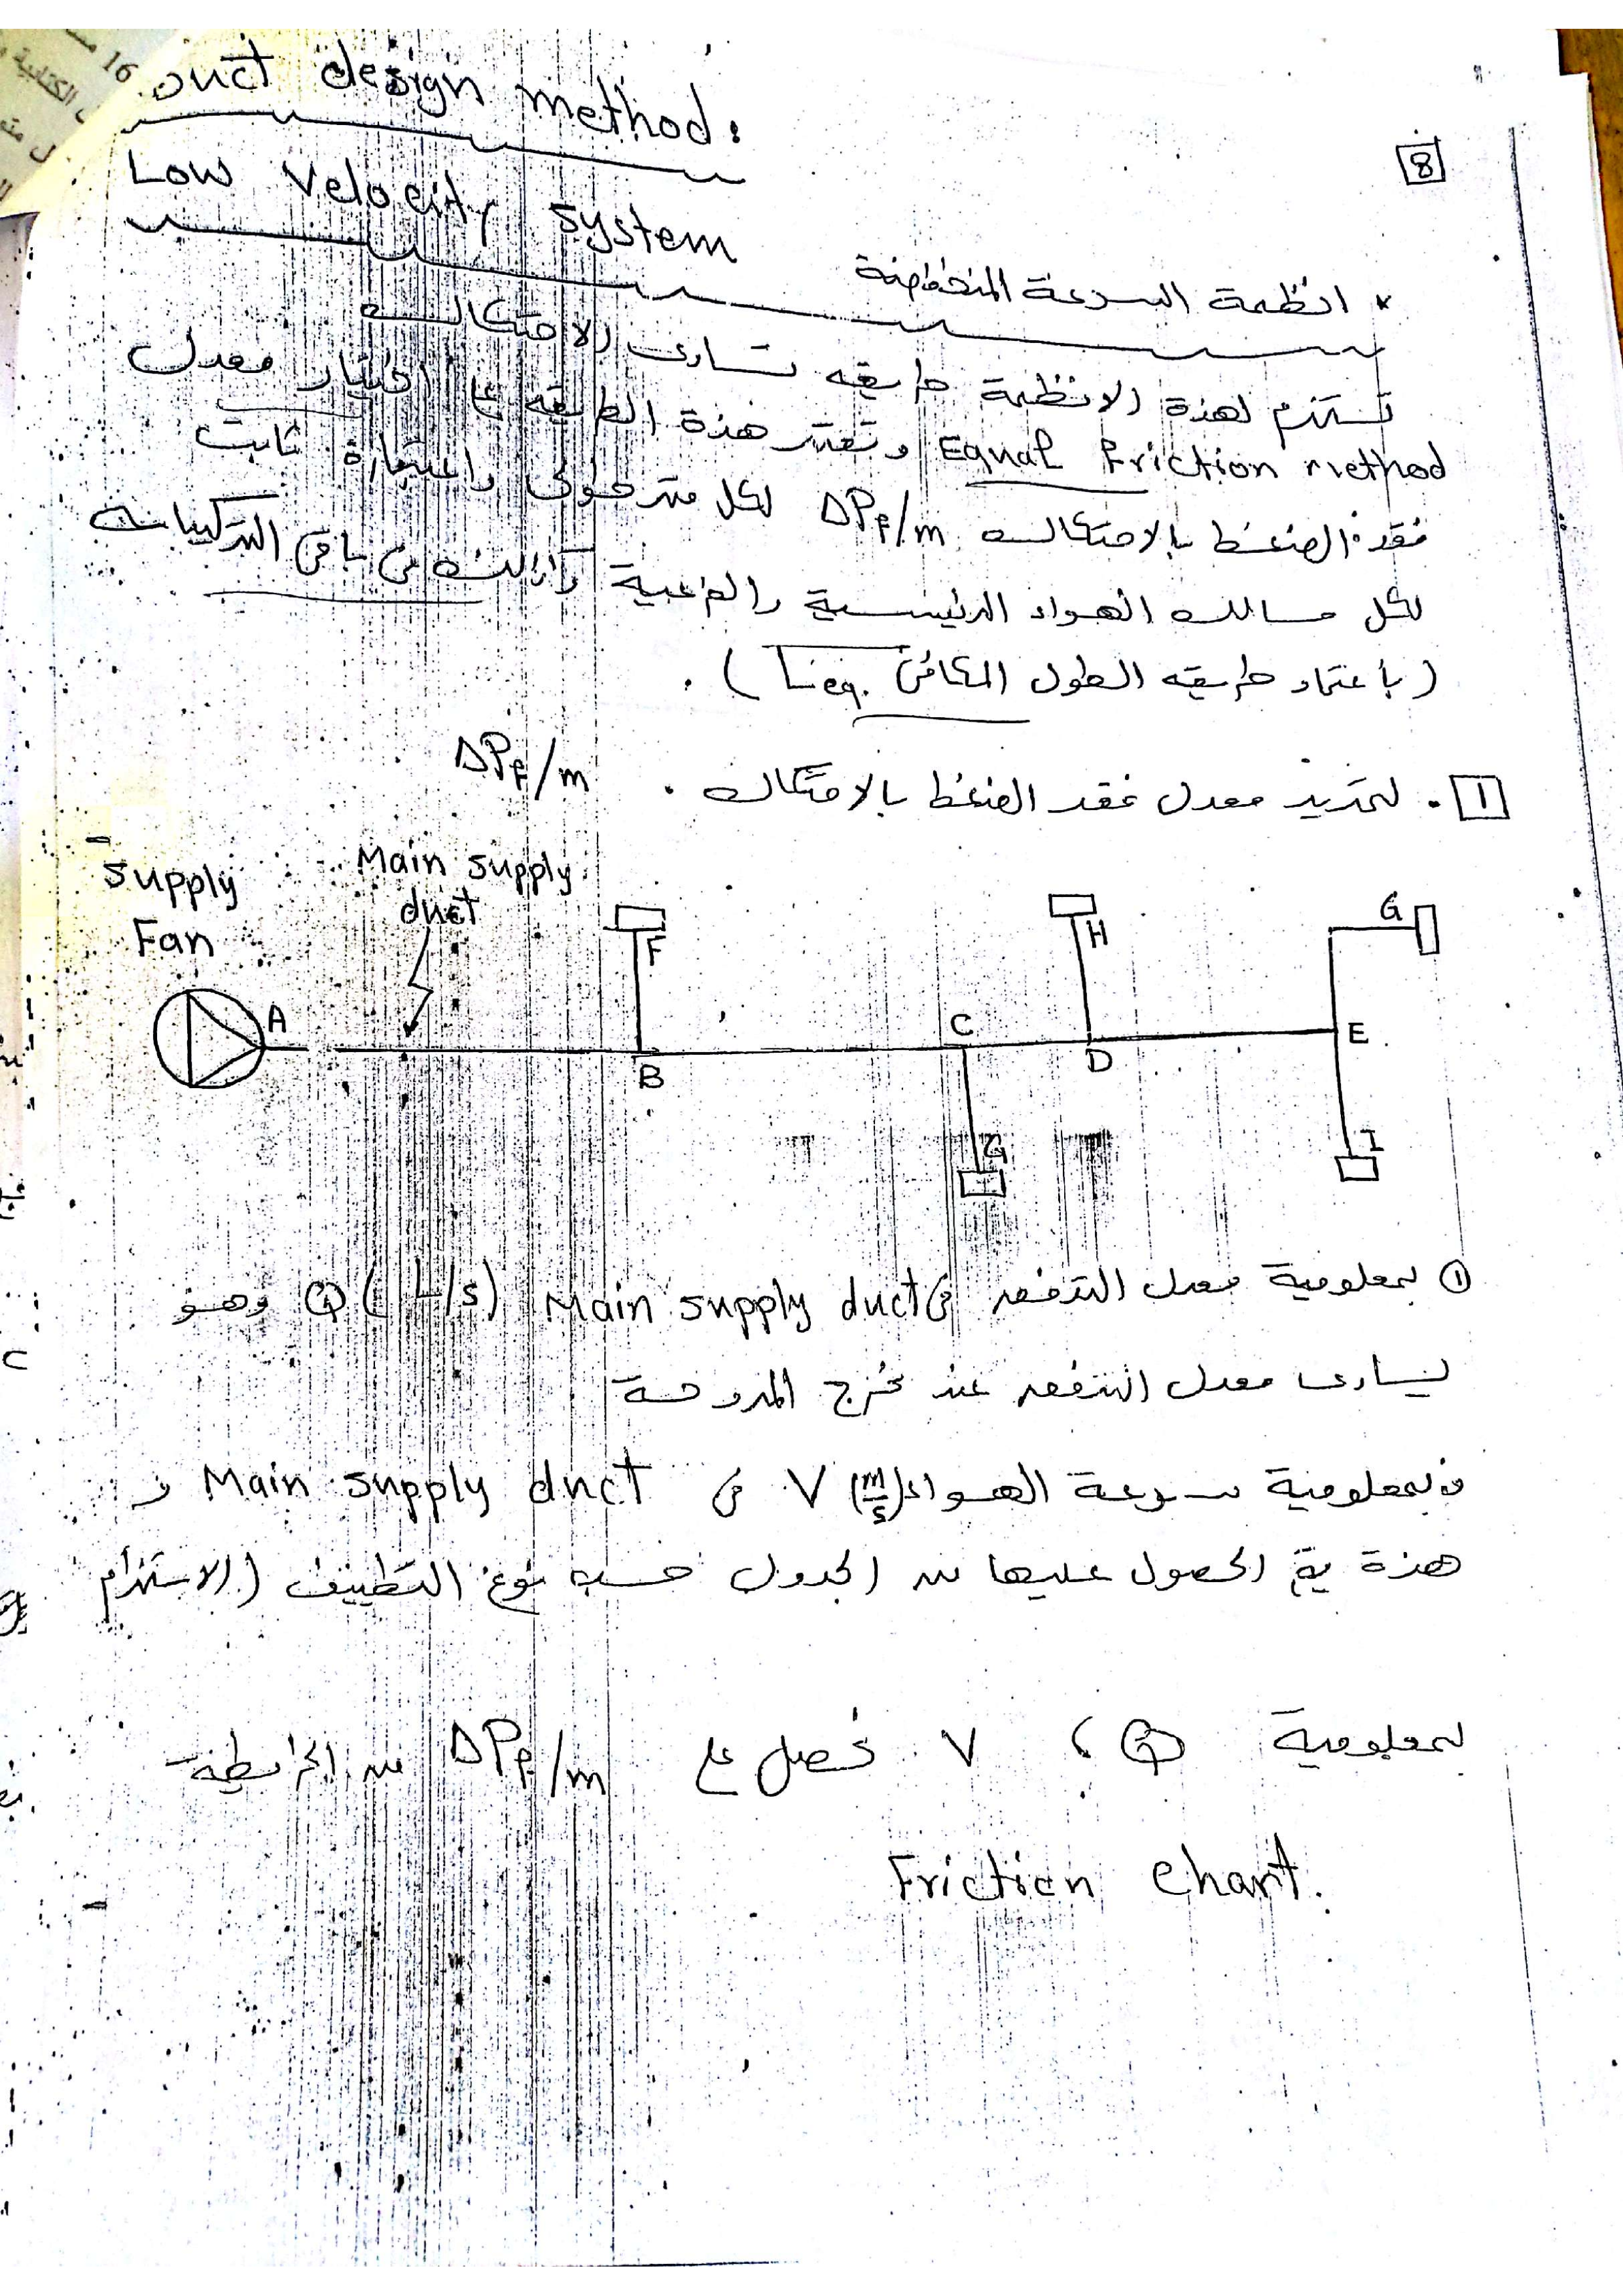 Duct design method.
8
Low Velocity system
* انظمة السرعة المنخفضة
تستخدم لهذة الانظمة طريقه تساوي الاحتكاك
Equal Friction method وتعتبر هذة الطريقه على اختيار معدل
فقد الضغط بالاحتكاك ΔPf/m لكل متر طولي واعتبارة ثابت
لكل مسالك الهواء الرئيسية والفرعية وكذلك في باقي التركيبات
(باعتماد طريقه الطول المكافئ Leq.) .
1 . لتحديد معدل فقد الضغط بالاحتكاك . ΔPf/m
Supply Fan
Main supply duct
A
B
C
D
E
F
H
G
G
I
① بمعلومية معدل التدفق في Main supply duct Q (L/s) وهو
يساوي معدل التدفق عند مخرج المروحة
وبمعلومية سرعة الهواء V (m/s) في Main supply duct و
هذة يتم الحصول عليها من الجدول حسب نوع التطبيق (الاستخدام
بمعلومية Q ، V نحصل على ΔPf/m من الخريطة
Friction Chart.
16
الكتابية